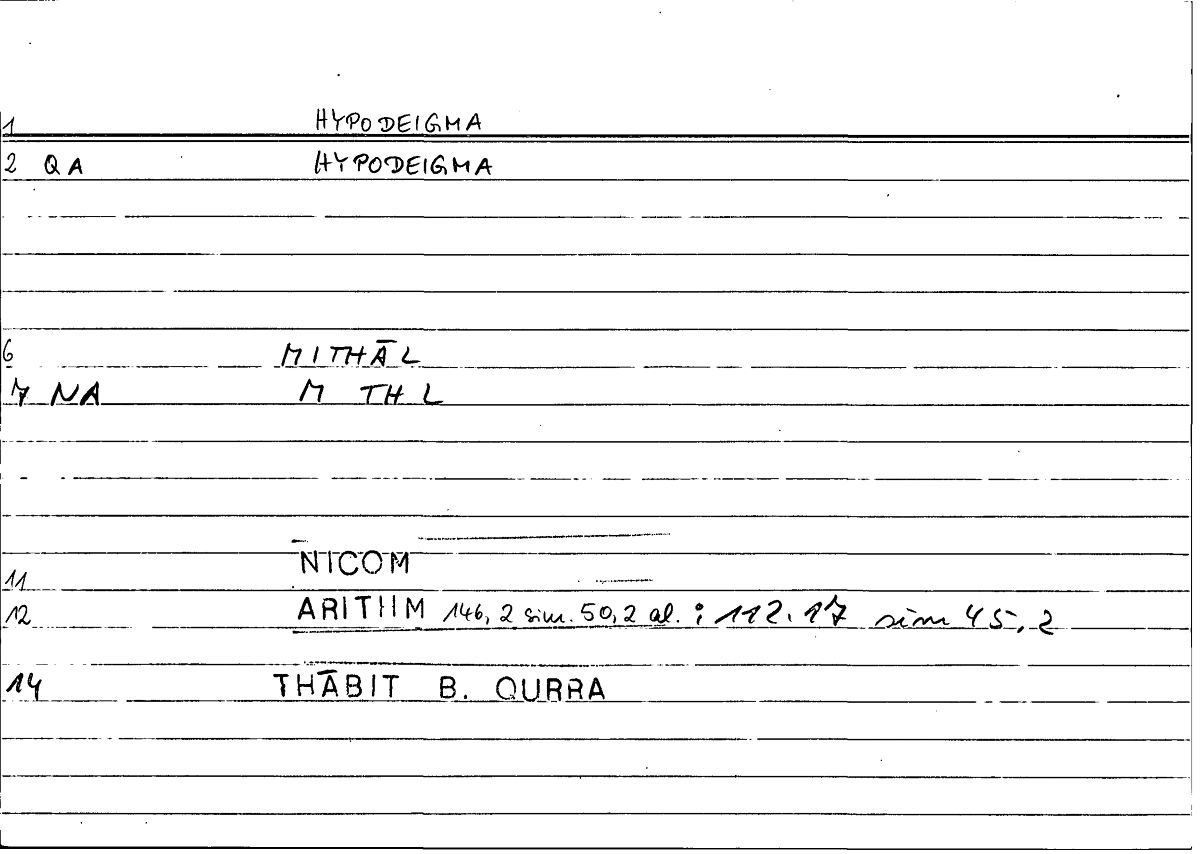 1 HYPODEIGMA
2 QA HYPODEIGMA
6 MITHĀL
7 NA M TH L
11 NICOM
12 ARITHM 146, 2 sim. 50, 2 al. ; 112.17 sim 45, 2
14 THĀBIT B. QURRA